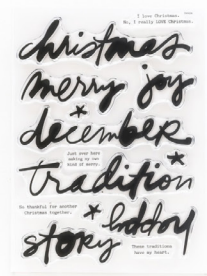 I love Christmas.
No, I really LOVE Christmas.
christmas
merry joy
december
Just over here
making my two
kind of merry.
tradition
So thankful for another
Christmas together.
happy
story
These traditions
have my heart.